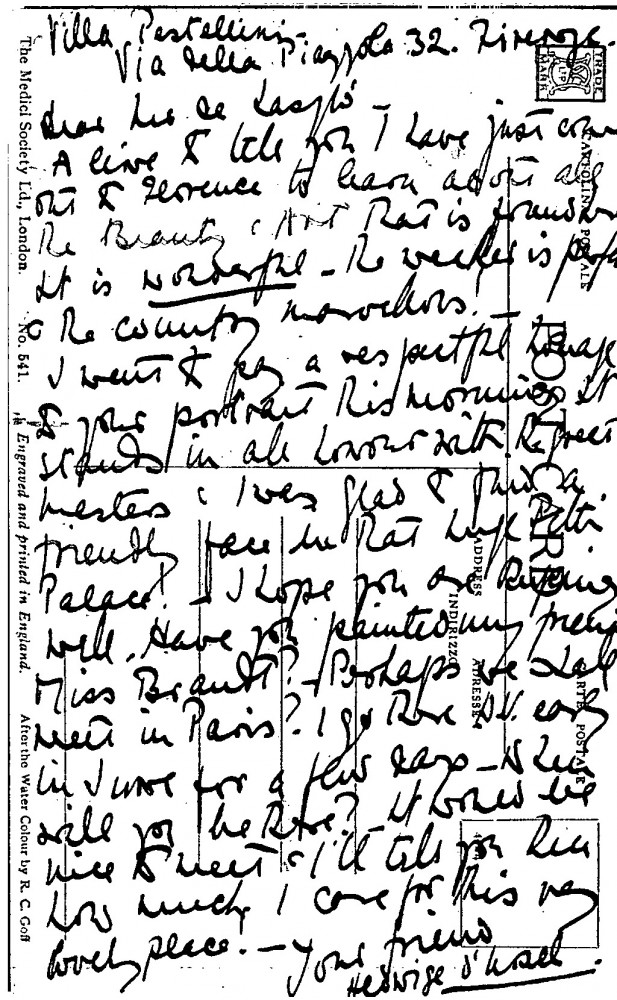 Villa Pestellini -
Via della Piazzola 32. Firenze.
Dear Mr de Laszló -
A line to tell you I have just come
out to Florence to learn about all
the Beauty & Art that is found here
It is wonderful - the weather is perfect
& the country marvellous. -
I went to pay a respectful homage
to your portrait this morning. It
stands in all honour with the great
masters & I was glad to find a
friendly face in that huge Pitti
Palace! - I hope you are keeping
well. Have you painted my friend
Miss Brandt? - Perhaps we shall
meet in Paris? I go there D.V. early
in June for a few days - When
will you be there? It would be
nice to meet & I'll tell you then
how much I care for this very
lovely place. - Your friend
Hedwige d'Ursel.
The Medici Society Ld., London. No. 541. Engraved and printed in England. After the Water Colour by R. C. Goff
TRADE MARK
CARTOLINA POSTALE
POST CARD
CARTE POSTALE
ADDRESS
INDIRIZZO
ADRESSE